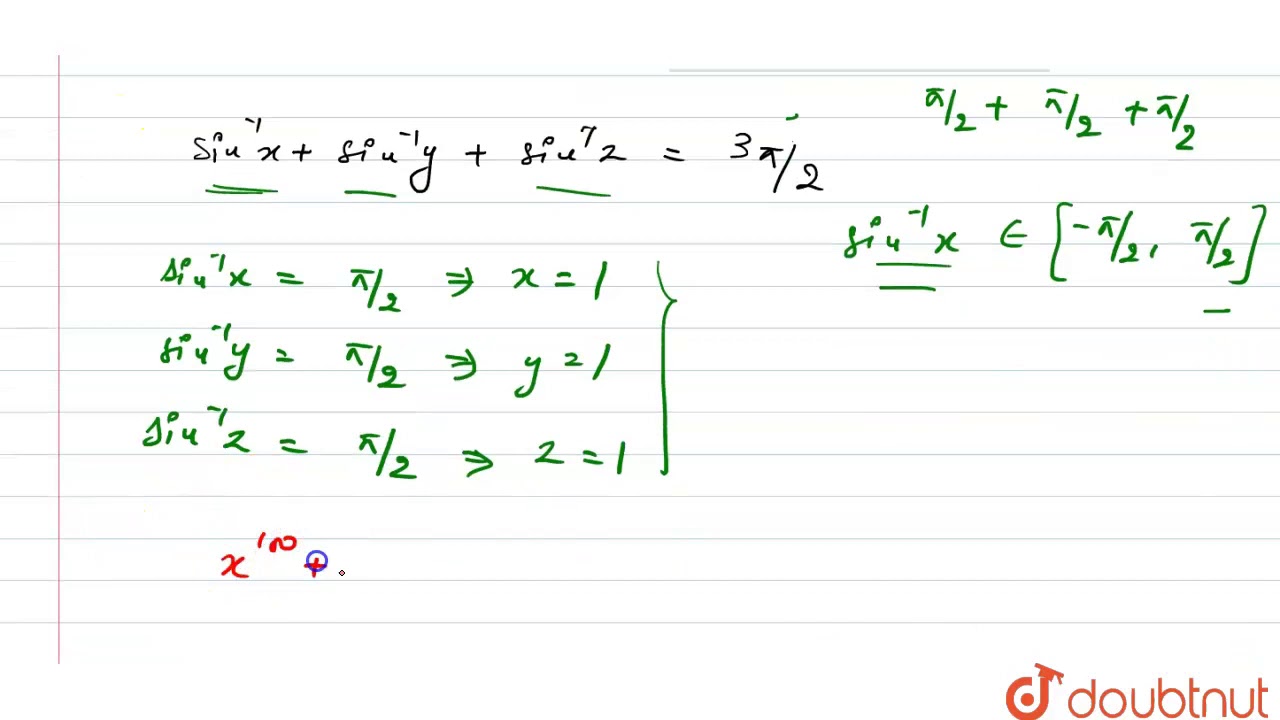 π/2 + π/2 + π/2
sin⁻¹x + sin⁻¹y + sin⁻¹z = 3π/2
sin⁻¹x ∈ [-π/2, π/2]
sin⁻¹x = π/2 ⇒ x = 1
sin⁻¹y = π/2 ⇒ y = 1
sin⁻¹z = π/2 ⇒ z = 1
x¹⁰⁰ +
doubtnut